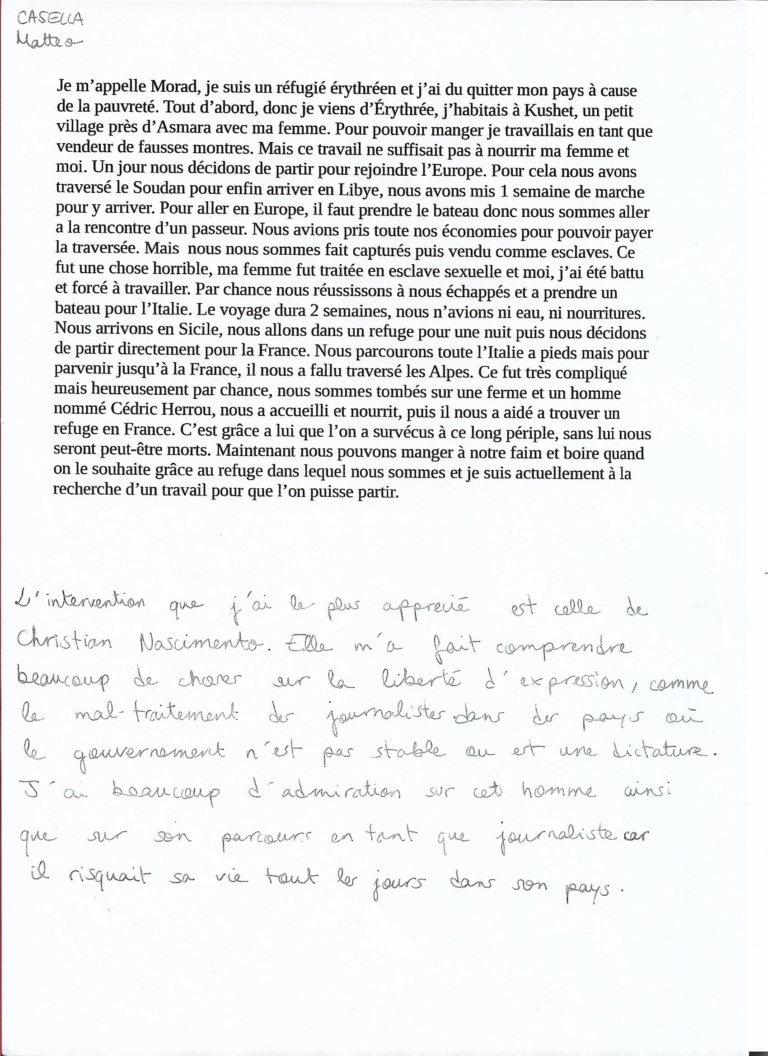 CASELLA
Matteo
Je m'appelle Morad, je suis un réfugié érythréen et j'ai du quitter mon pays à cause
de la pauvreté. Tout d'abord, donc je viens d'Érythrée, j'habitais à Kushet, un petit
village près d'Asmara avec ma femme. Pour pouvoir manger je travaillais en tant que
vendeur de fausses montres. Mais ce travail ne suffisait pas à nourrir ma femme et
moi. Un jour nous décidons de partir pour rejoindre l'Europe. Pour cela nous avons
traversé le Soudan pour enfin arriver en Libye, nous avons mis 1 semaine de marche
pour y arriver. Pour aller en Europe, il faut prendre le bateau donc nous sommes aller
a la rencontre d'un passeur. Nous avions pris toute nos économies pour pouvoir payer
la traversée. Mais  nous nous sommes fait capturés puis vendu comme esclaves. Ce
fut une chose horrible, ma femme fut traitée en esclave sexuelle et moi, j'ai été battu
et forcé à travailler. Par chance nous réussissons à nous échappés et a prendre un
bateau pour l'Italie. Le voyage dura 2 semaines, nous n'avions ni eau, ni nourritures.
Nous arrivons en Sicile, nous allons dans un refuge pour une nuit puis nous décidons
de partir directement pour la France. Nous parcourons toute l'Italie a pieds mais pour
parvenir jusqu'à la France, il nous a fallu traversé les Alpes. Ce fut très compliqué
mais heureusement par chance, nous sommes tombés sur une ferme et un homme
nommé Cédric Herrou, nous a accueilli et nourrit, puis il nous a aidé a trouver un
refuge en France. C'est grâce a lui que l'on a survécus à ce long périple, sans lui nous
seront peut-être morts. Maintenant nous pouvons manger à notre faim et boire quand
on le souhaite grâce au refuge dans lequel nous sommes et je suis actuellement à la
recherche d'un travail pour que l'on puisse partir.
L'intervention que j'ai le plus apprecié est celle de
Christian Nascimento. Elle m'a fait comprendre
beaucoup de choses sur la liberté d'expression, comme
le mal-traitement des journalistes dans des pays où
le gouvernement n'est pas stable ou est une dictature.
J'ai beaucoup d'admiration sur cet homme ainsi
que sur son parcours en tant que journaliste car
il risquait sa vie tout les jours dans son pays.